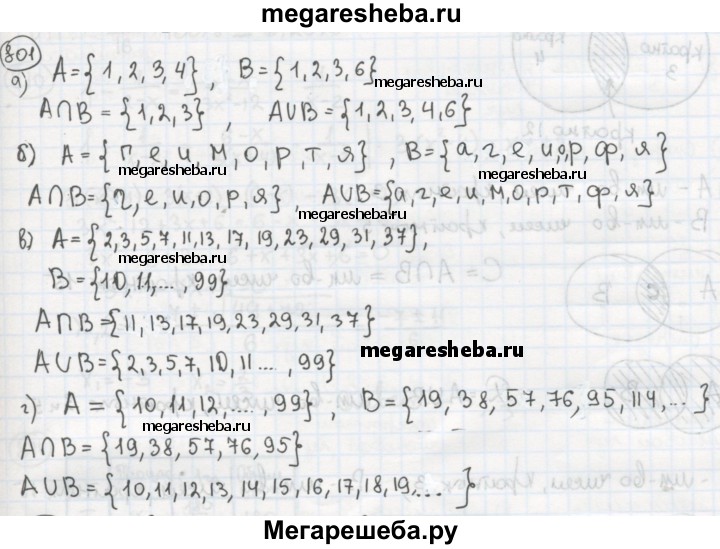 megaresheba.ru
801
а) A={1,2,3,4}, B={1,2,3,6}
megaresheba.ru
A∩B = {1,2,3}, A∪B={1,2,3,4,6}
б) A={г,е,и,м,о,р,т,я}, B={а,г,е,и,о,р,ф,я}
megaresheba.ru
A∩B={г,е,и,о,р,я} A∪B={а,г,е,и,м,о,р,т,ф,я}
megaresheba.ru
в) A={2,3,5,7,11,13,17,19,23,29,31,37},
megaresheba.ru
B={10,11,...,99}
A∩B={11,13,17,19,23,29,31,37}
megaresheba.ru
A∪B={2,3,5,7,10,11...,99}
г) A={10,11,12,...,99}, B={19,38,57,76,95,114,...}
megaresheba.ru
A∩B={19,38,57,76,95}
A∪B={10,11,12,13,14,15,16,17,18,19,...}
megaresheba.ru
Мегарешеба.ру